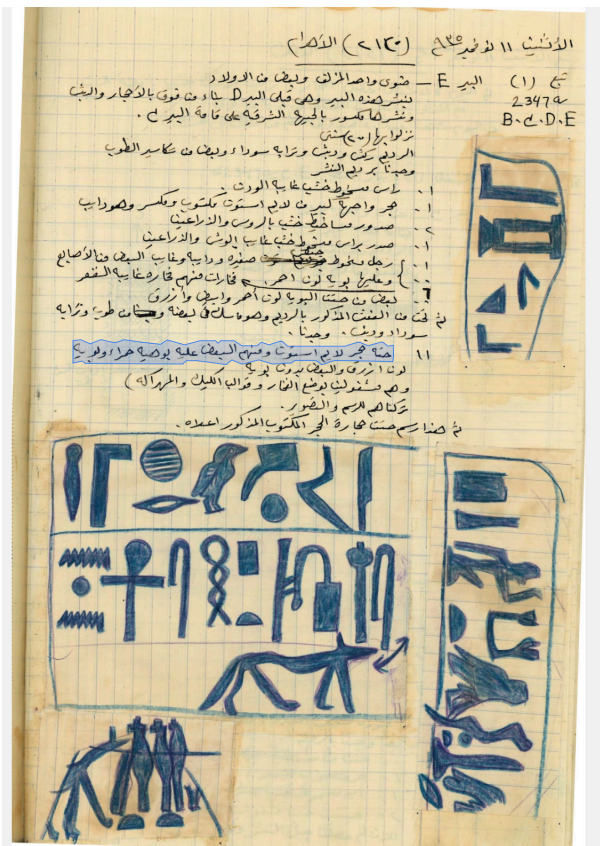 الأثنين ١١ نوفمبر ٩٣٥
(٢١٣٠) الأهرام
تبع (١) البير E — ضوى واحد المؤلف وبعض من الاولاد
2347a
B.C.D.E
ننشر هذه البير وهى قبلى البير D بناء من فوق بالأحجار والدبش
ونشرها مكسور بالجهة الشرقية على قامة البير C.
نزلوا بها (٢٠) سنتى
الرديم ركش ودبش وترابه سوداء وبعض من تكاسير الطوب
وجدنا برديم النشر
١. راس مسخوط خشب غايب الودن.
١. حجر واجهة كبير من لايم استون مكتوب ومكسر وهو دايب
٢. صدور مساخيط خشب بالروس والذراعين
١. صدر براس مسخوط خشب غايب الوش والذراعين
١. رجل مسخوط خشب صغيره ودايبة وغايب البعض من الأصابع
وعليها بويا لون أحمر.
٦ فخارات منهم فخاره غايبة القعر
.. بعض من حتت البويا لون أحمر وابيض وأزرق
ثم تحت من العفش المذكور بالرديم وهو ماسك فى بعضه من طوب وترابه
سوداء ودبش. وجدنا.
١١ حتة حجر لايم استون ومنهم البعض عليه بوهية حمراء وبوية
لون أزرق والبعض بدون بويا
وهم مشغولين بوضع الفخار وقوالب الكليك والمهراكة)
تركناهم للرسم والتصوير.
ثم هذا رسم حتت حجارة الحجر المكتوب المذكور اعلاه.